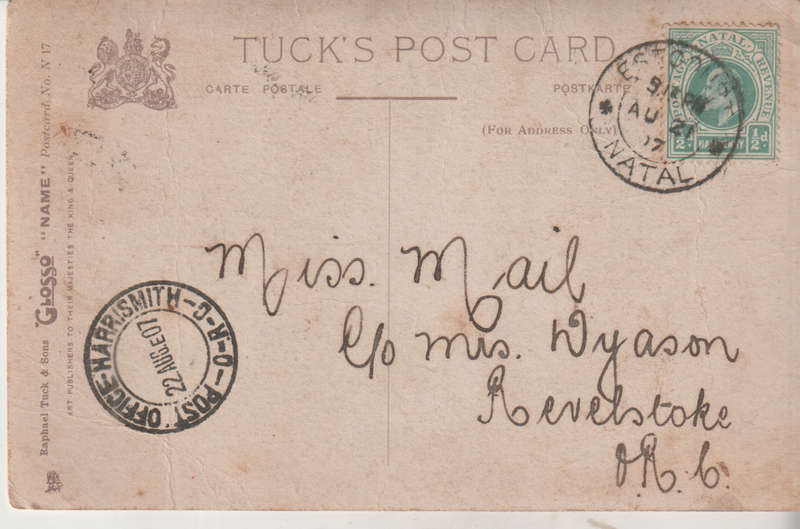 TUCK'S POST CARD
CARTE POSTALE
POSTKARTE
(FOR ADDRESS ONLY)
POSTAGE NATAL REVENUE
½d HALFPENNY ½d
AU 21
07
NATAL
Miss. Mail
C/o Mrs. Dyason
Revelstoke
O.R.C.
POST OFFICE-HARRISMITH-O-R-C-
22 AUG.E.07
Raphael Tuck & Sons "GLOSSO" "NAME" Postcard No. N 17
ART PUBLISHERS TO THEIR MAJESTIES THE KING & QUEEN